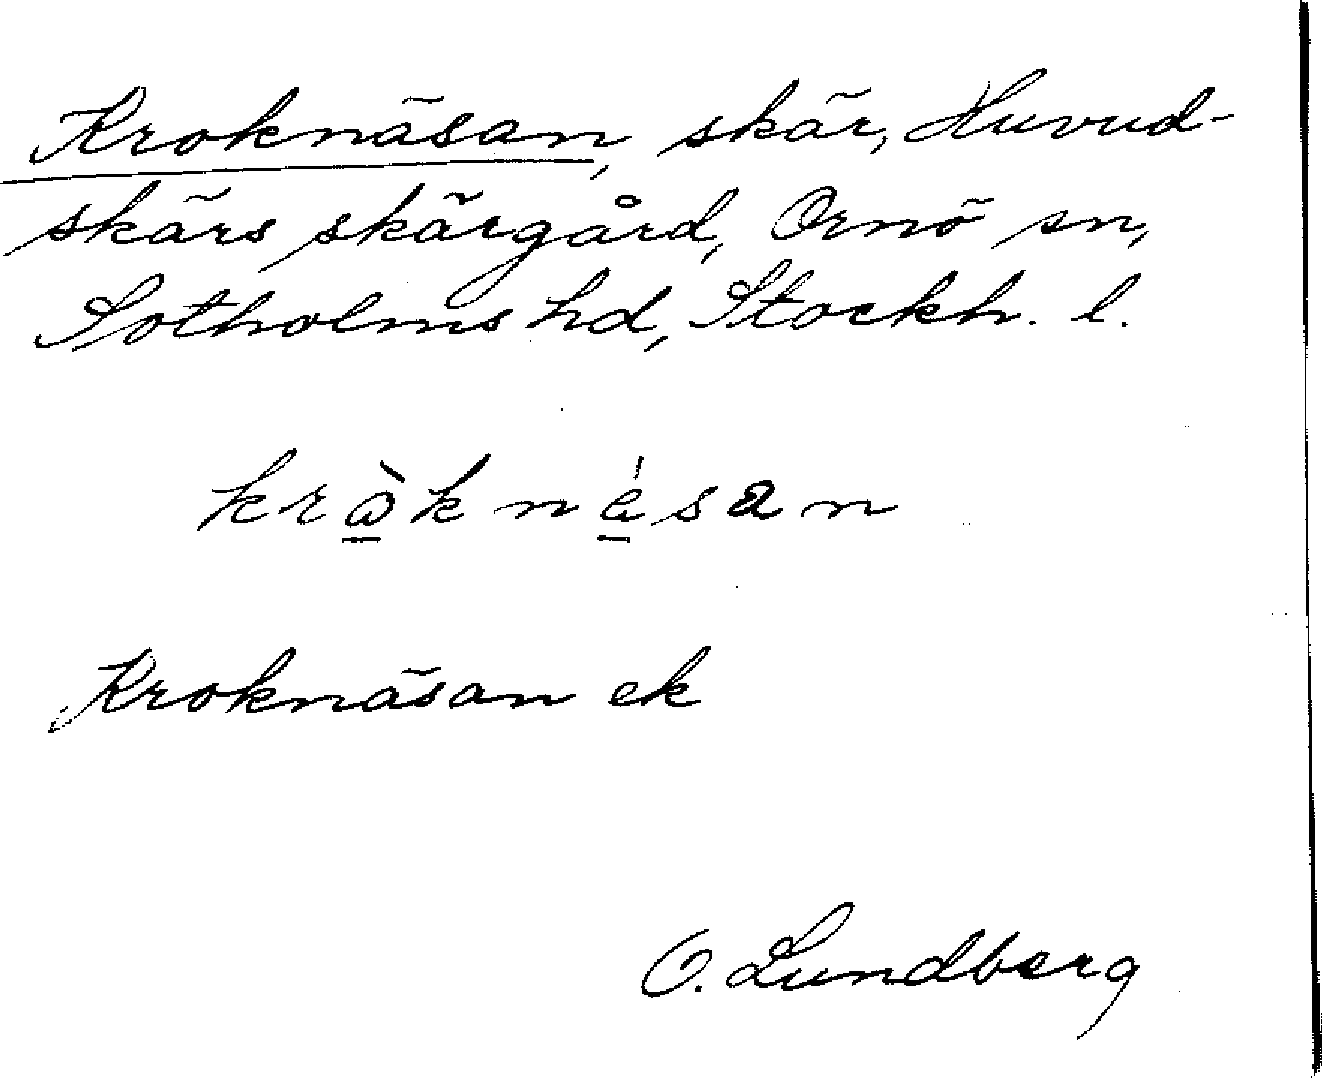 Kroknäsan, skär, Huvud-
skärs skärgård, Ornö sn,
Sotholms hd, Stockh. l.
Kroknäsan ek
O. Lundberg